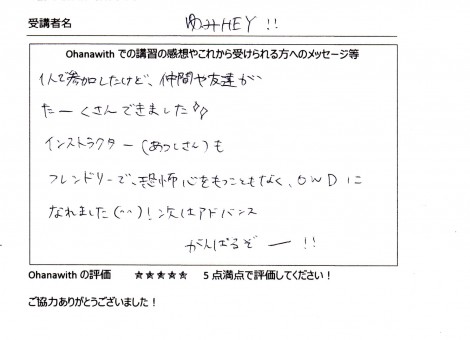 受講者名 ゆみHEY !!
Ohanawith での講習の感想やこれから受けられる方へのメッセージ等
1人で参加したけど、仲間や友達が
たーくさんできました♪♪
インストラクター(あつしさん)も
フレンドリーで、恐怖心をもつこともなく、OWDに
なれました(^^)!次はアドバンス
がんばるぞー!!
Ohanawith の評価 ★★★★★ 5点満点で評価してください!
ご協力ありがとうございました!